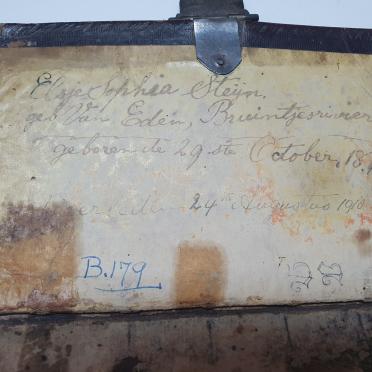 Elsje Sophia Steijn.
geb Van Eden, Bruintjesrivier
geboren de 29 ste October, 18
24 Augustus 191
B.179